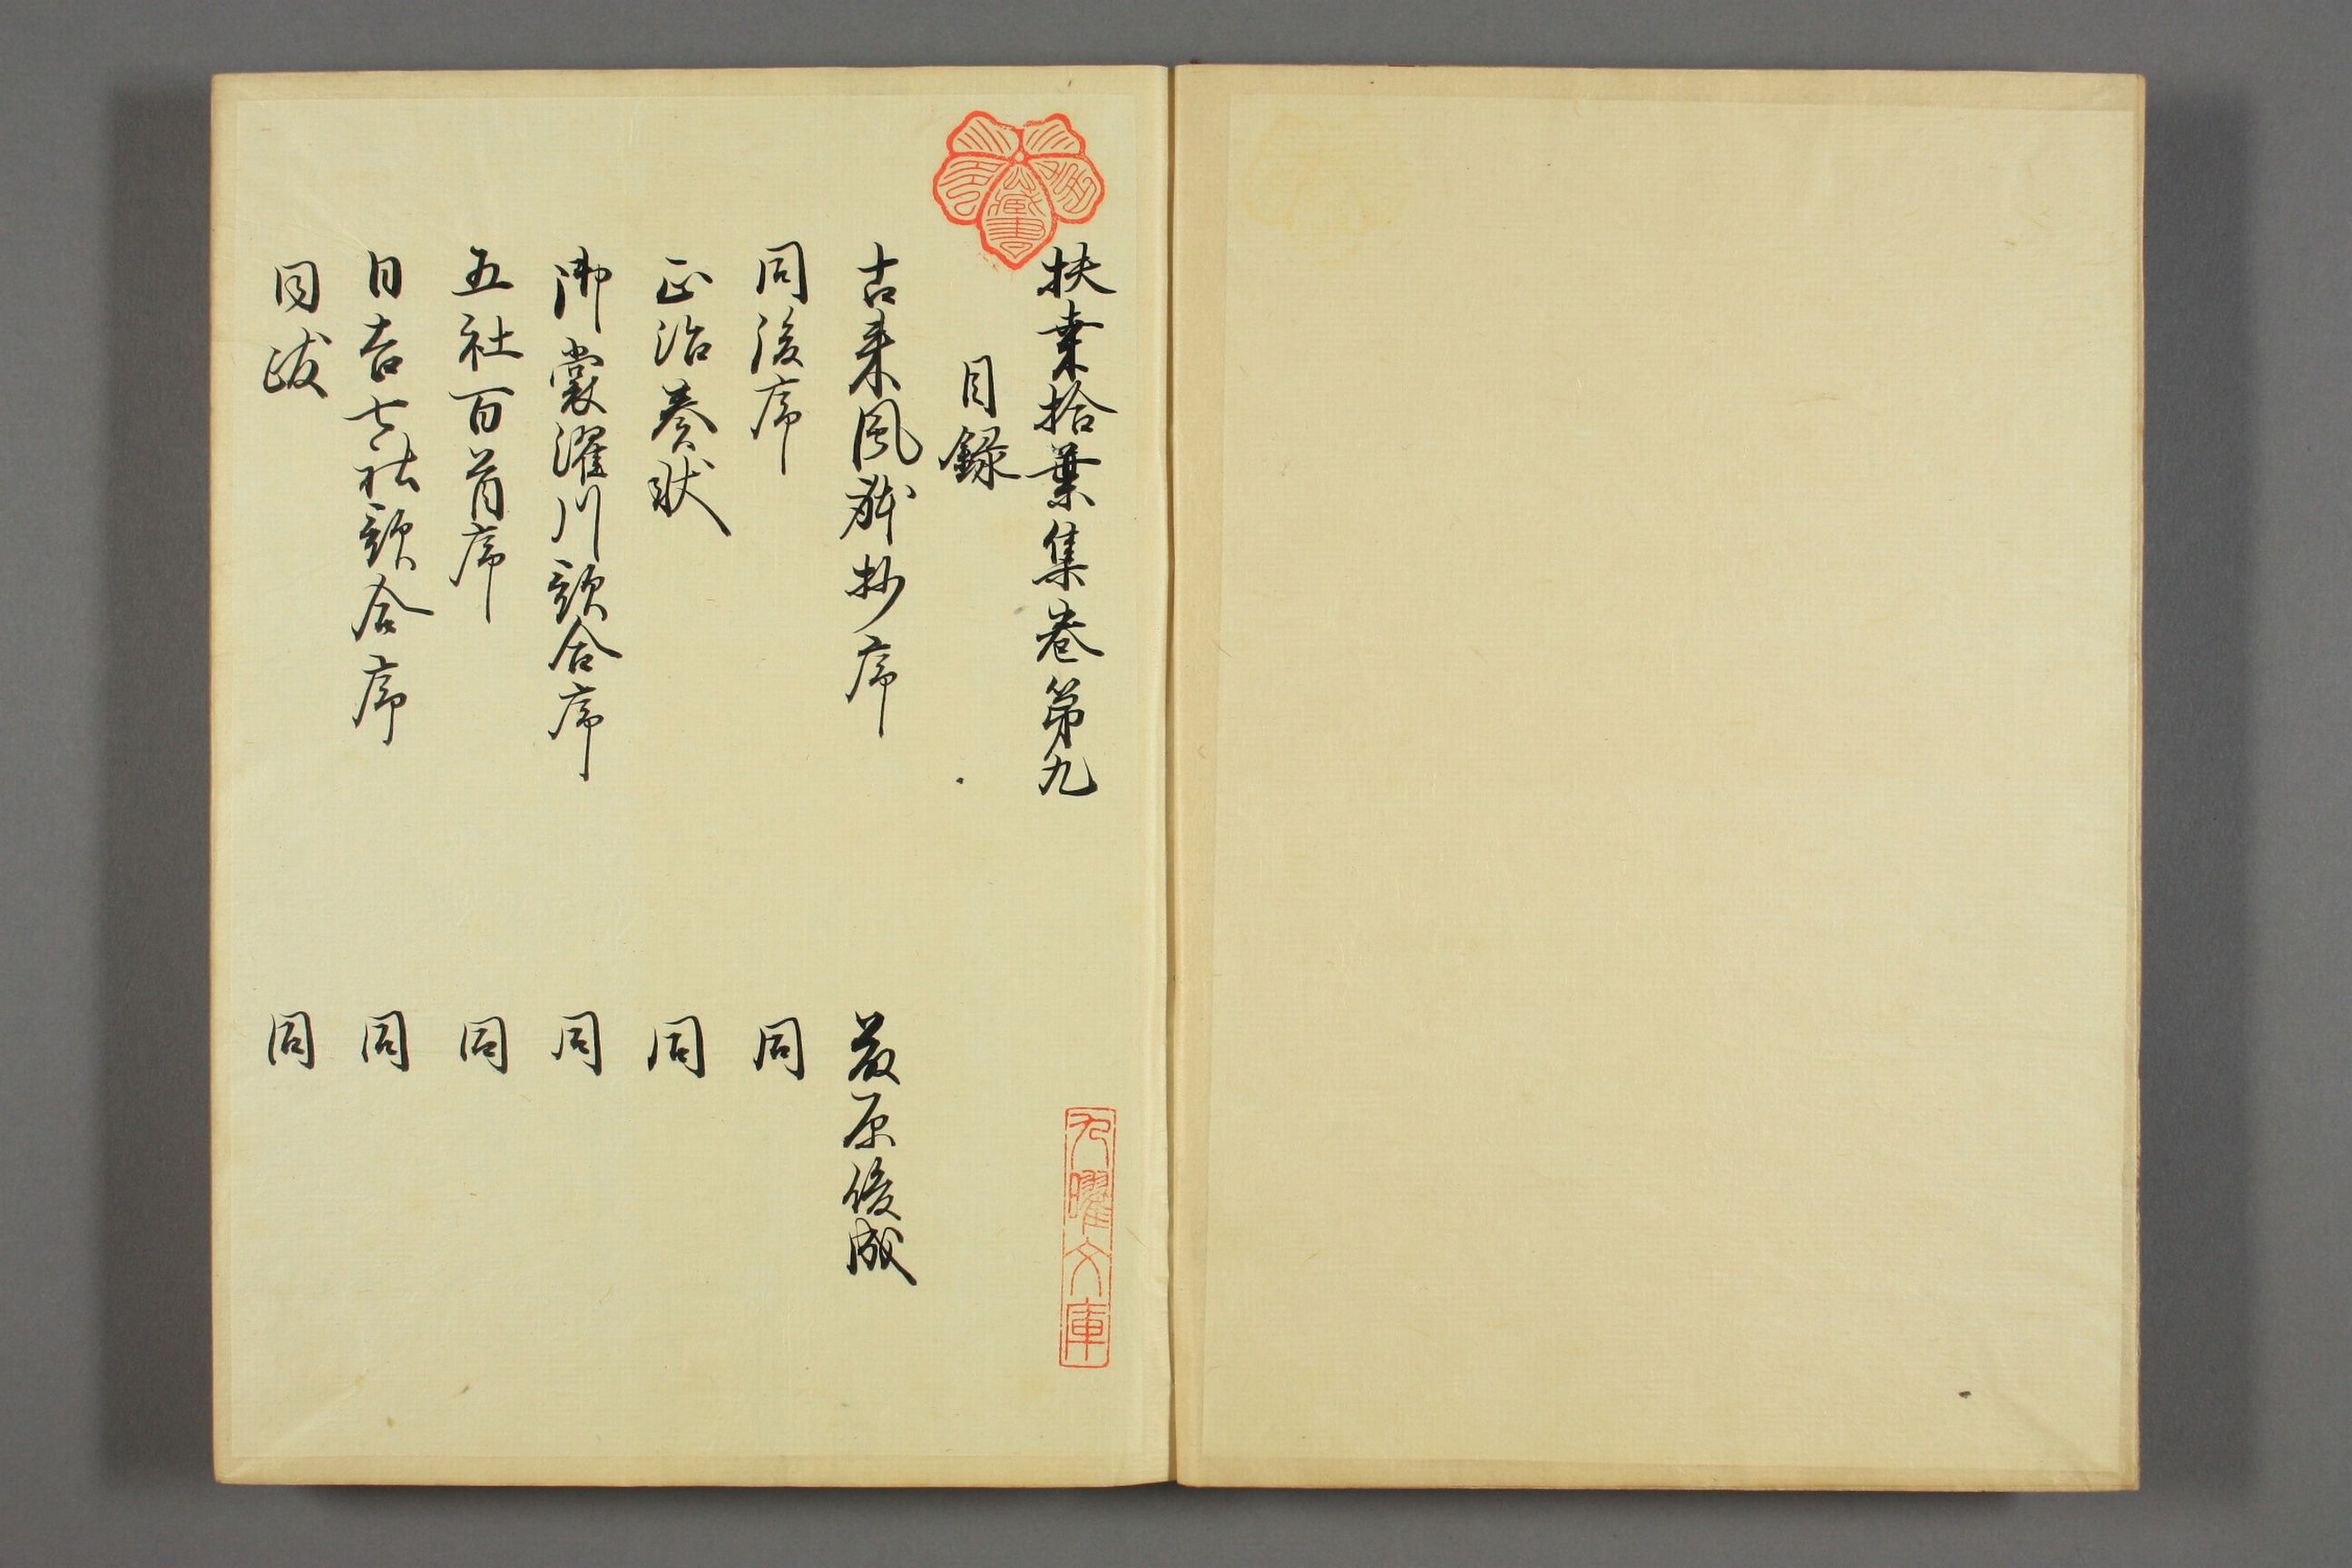 扶桑拾葉集巻第九
目録
古来風躰抄序 藤原俊成
同後序 同
正治奏状 同
御裳濯川歌合序 同
五社百首序 同
日吉七社歌合序 同
同跋 同
九曜文庫